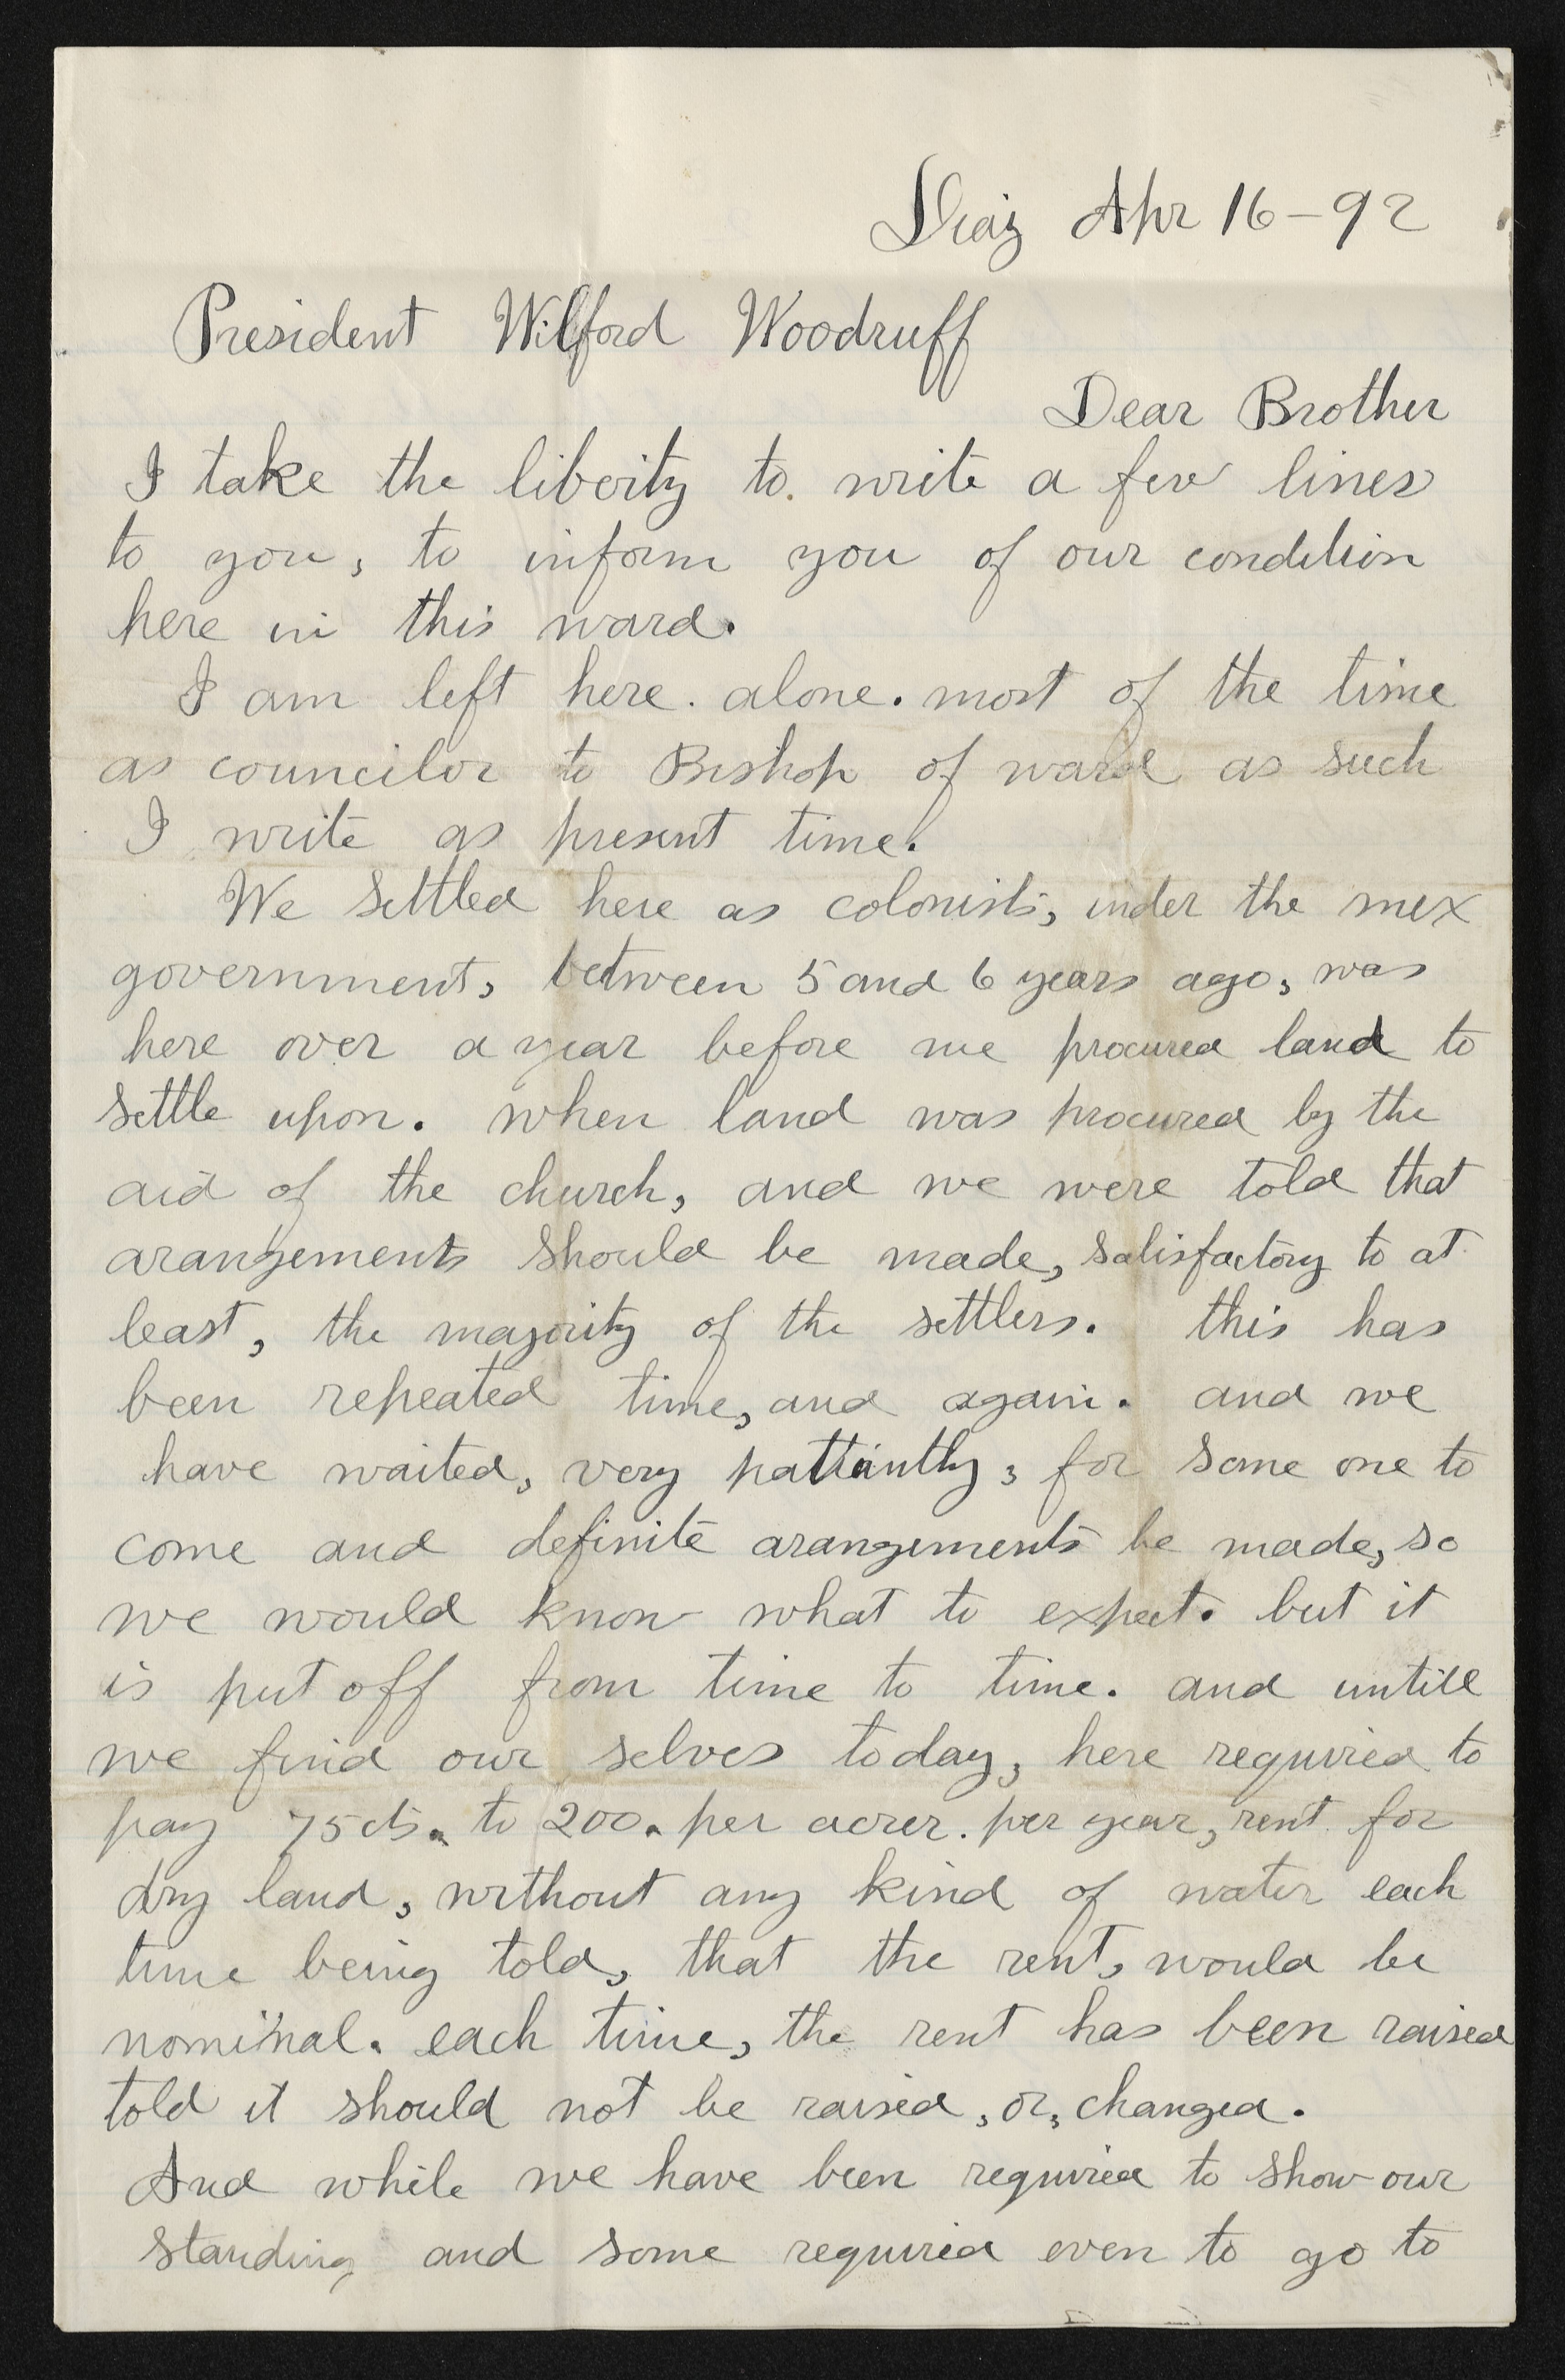 Diaz Apr 16-92
President Wilford Woodruff
Dear Brother
I take the liberity to. write a few lines
to you, to inform you of our condition
here in this ward.
I am left here. alone. most of the time
as councilor to Bishop of ward as such
I write as present time.
We settled here as colonists, under the mex
government, between 5 and 6 years ago, was
here over a year before we procured land to
settle upon. when land was procured by the
aid of the church, and we were told that
arangements should be made, satisfactory to at
least, the majority of the settlers. this has
been repeated time, and again. and we
have waited, very pattiantly, for some one to
come and definite arangements be made, so
we would know what to expect. but it
is put off from time to time. and untill
we find our selves today, here required to
pay 75 cts. to 200. per acrer. per year, rent for
dry land, without any kind of water each
time being told, that the rent, would be
nominal. each time, the rent has been raised
told it should not be raised, or, changed.
And while we have been required to show our
standing, and some required even to go to